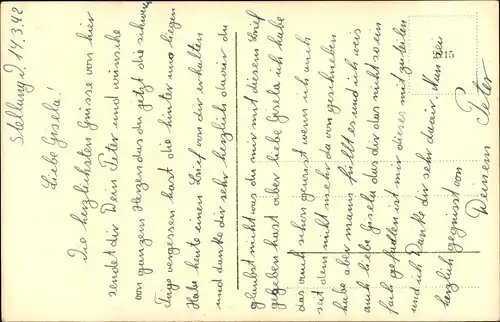 Stellung d. 14.3.42
Liebe Gisela!
Die herzlichsten Grüsse von hier
sendet dir Dein Peter und wünsche
von ganzem Herzen das du jetzt die schweren
Tage vergessen hast die hinter uns liegen
Habe heute einen Brief von dir erhalten
und danke dir sehr herzlich dafür du
glaubst nicht was du mir mit diesem Brief
gegeben hast aber liebe Gisela ich habe
das auch schon gewusst wenn ich auch
seit dem nicht mehr da von geschrieben
habe aber mann fühlt es und ich weis
auch liebe Gisela das dir das nicht so ein
fach gefallen ist mir dieses mit zu teilen
und ich Danke dir sehr dafür. Nun sei
herzlich gegrüsst von
Deinem Peter